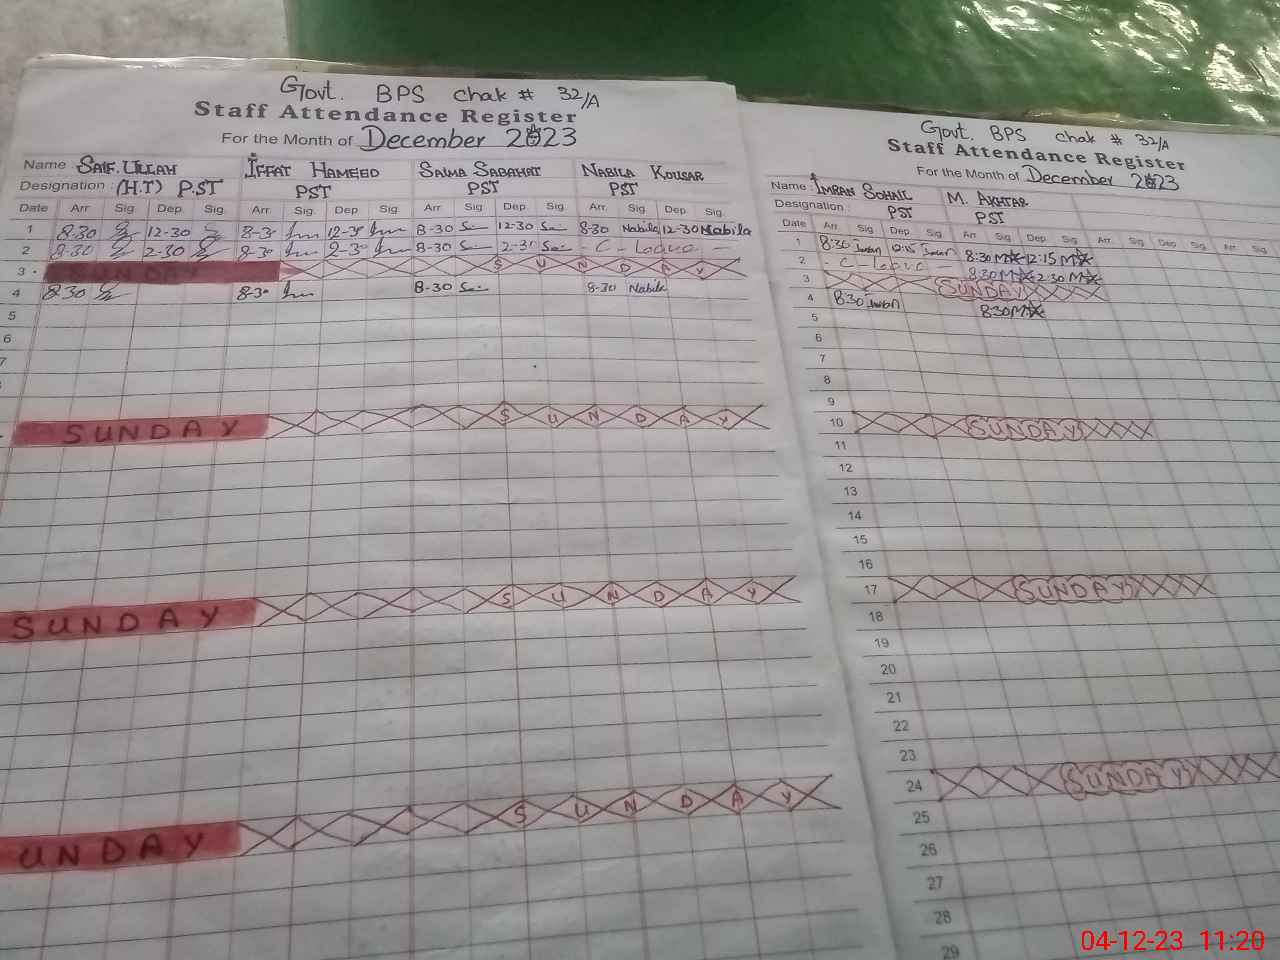 Govt. BPS Chak # 32/A
Staff Attendance Register
For the Month of December 2023
Name : SAIF ULLAH IFFAT HAMEED SAIMA SABAHAT NABILA KOUSAR
Designation : (H.T) P.ST PST PST PST
Date Arr. Sig. Dep. Sig. Arr. Sig. Dep. Sig. Arr. Sig. Dep. Sig. Arr. Sig. Dep. Sig.
1 8-30 12-30 8-30 12-30 8-30 12-30 8-30 Nabila 12-30 Nabila
2 8-30 2-30 8-30 2-30 8-30 2-30 - C - Leave -
3 SUNDAY SUNDAY
4 8-30 8-30 8-30 8-30 Nabila
5
6
7
SUNDAY SUNDAY
SUNDAY SUNDAY
UNDAY SUNDAY
Govt. BPS Chak # 32/A
Staff Attendance Register
For the Month of December 2023
Name : IMRAN SOHAIL M. AKHTAR
Designation : PST PST
Date Arr. Sig. Dep. Sig. Arr. Sig. Dep. Sig. Arr. Sig. Dep. Sig. Arr. Sig.
1 8:30 Imran 12:15 Imran 8:30 12:15
2 - C - Leave - 8:30 2:30
3 SUNDAY
4 8:30 Imran 8:30
5
6
7
8
9
10 SUNDAY
11
12
13
14
15
16
17 SUNDAY
18
19
20
21
22
23
24 SUNDAY
25
26
27
28
29
04-12-23 11:20